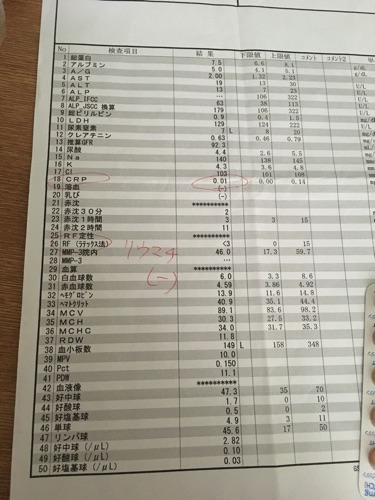 No 検査項目 結果 下限値 上限値 コメント コメント2
1 総蛋白 7.5 6.6 8.1 g/dL
2 アルブミン 5.0 4.1 5.1
3 A/G 2.00 1.32 2.23
4 AST 19 13 30 U/L
5 ALT 13 7 23 U/L
6 ALP ...
7 ALP_IFCC 63 38 113 U/L
8 ALP_JSCC 換算 179 106 322 U/L
9 総ビリルビン 0.9 0.4 1.5
10 LDH 129 124 222 U/L
11 尿素窒素 7 L 8 20
12 クレアチニン 0.63 0.46 0.79
13 推算GFR 92.3
14 尿酸 4.4 2.6 5.5
15 Na 140 138 145
16 K 4.3 3.6 4.8
17 Cl 103 101 108
18 CRP 0.01 0.00 0.14
19 溶血 (-)
20 乳び (-)
21 赤沈 **********
22 赤沈30分 2
23 赤沈1時間 3 3 15
24 赤沈2時間 11
25 RF定性 **********
26 RF (ラテックス法) <3 0 15
リウマチ
27 MMP-3院内 46.0 17.3 59.7
28 MMP-3 ...
(-)
29 血算 **********
30 白血球数 6.0 3.3 8.6
31 赤血球数 4.59 3.86 4.92
32 ヘモグロビン 13.9 11.6 14.8
33 ヘマトクリット 40.9 35.1 44.4
34 MCV 89.1 83.6 98.2
35 MCH 30.3 27.5 33.2
36 MCHC 34.0 31.7 35.3
37 RDW 11.8
38 血小板数 149 L 158 348
39 MPV 10.0
40 Pct 0.150
41 PDW 11.1
42 血液像 **********
43 好中球 47.3 35 70
44 好酸球 1.7 0 10
45 好塩基球 0.5 0 2
46 単球 4.9 3 11
47 リンパ球 45.6 17 50
48 好中球 (/μL) 2.82
49 好酸球 (/μL) 0.10
50 好塩基球 (/μL) 0.03